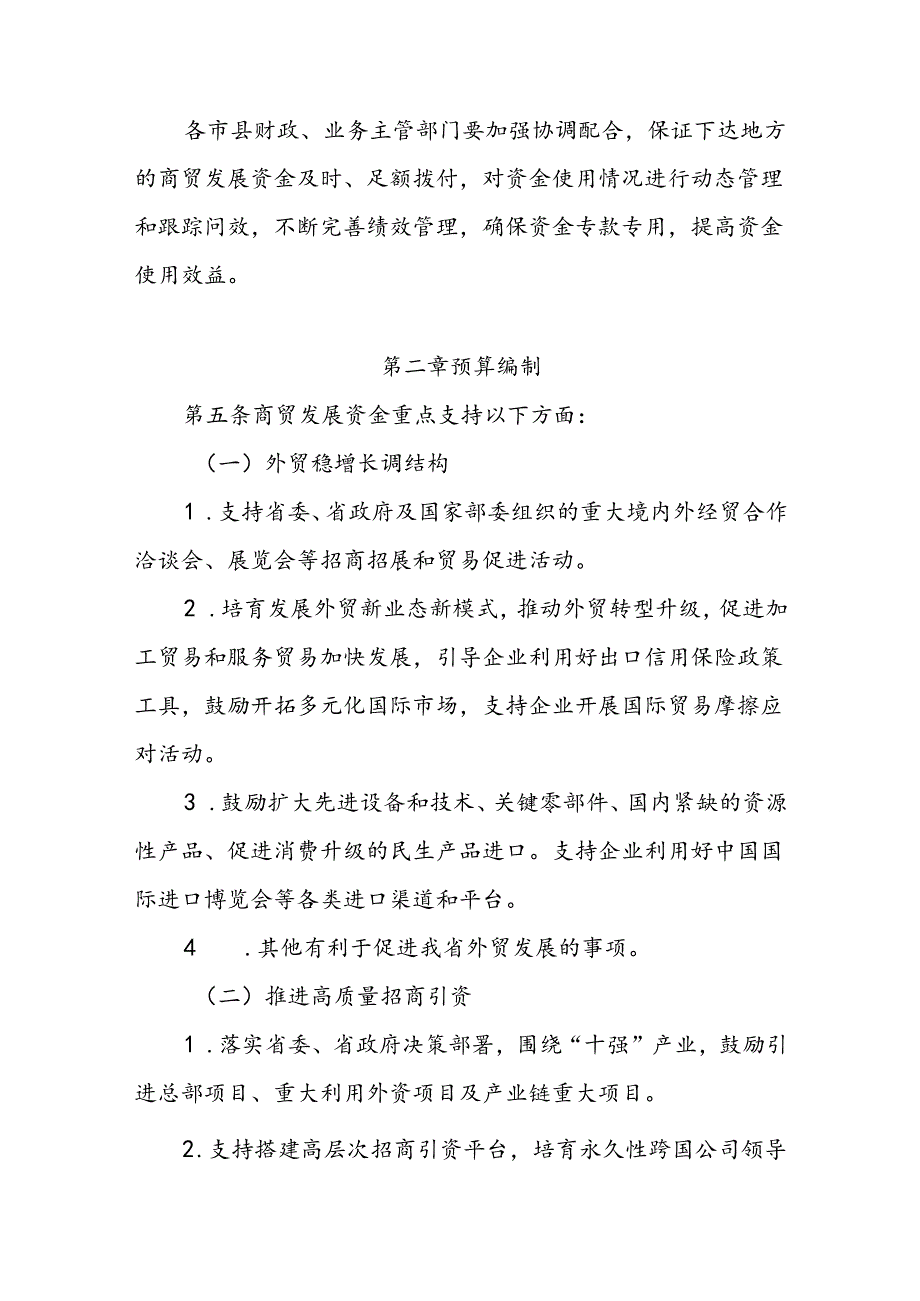 各市县财政、业务主管部门要加强协调配合，保证下达地方
的商贸发展资金及时、足额拨付，对资金使用情况进行动态管理
和跟踪问效，不断完善绩效管理，确保资金专款专用，提高资金
使用效益。
第二章预算编制
第五条商贸发展资金重点支持以下方面：
（一）外贸稳增长调结构
1 .支持省委、省政府及国家部委组织的重大境内外经贸合作
洽谈会、展览会等招商招展和贸易促进活动。
2 .培育发展外贸新业态新模式，推动外贸转型升级，促进加
工贸易和服务贸易加快发展，引导企业利用好出口信用保险政策
工具，鼓励开拓多元化国际市场，支持企业开展国际贸易摩擦应
对活动。
3 .鼓励扩大先进设备和技术、关键零部件、国内紧缺的资源
性产品、促进消费升级的民生产品进口。支持企业利用好中国国
际进口博览会等各类进口渠道和平台。
4 .其他有利于促进我省外贸发展的事项。
（二）推进高质量招商引资
1 .落实省委、省政府决策部署，围绕“十强”产业，鼓励引
进总部项目、重大利用外资项目及产业链重大项目。
2.支持搭建高层次招商引资平台，培育永久性跨国公司领导